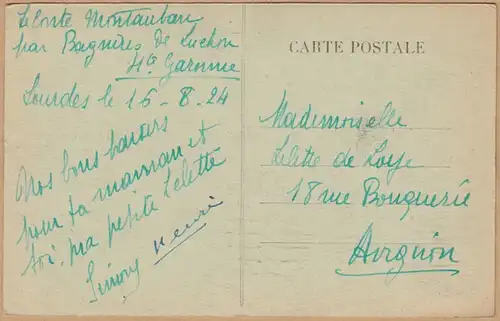 Lelette Montauban
par Bagnères de Luchon
Hte Garonne
Lourdes le 16-8-24
Nos bons baisers
pour ta maman et
toi. ma petite Lelette
Simon Henri
CARTE POSTALE
Mademoiselle
Lelette de Loye
18 rue Bonquerie
Avignon